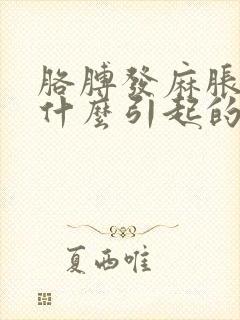 胳膊發麻脹
什麼引起的
夏西唯